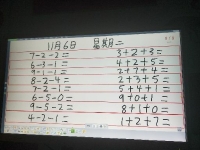 11月6日 星期二
7-2-2= 3+2+3=
6-3-1= 4+2+5=
9-1-1= 2+7+4=
8-2-4= 2+3+5=
7-2-1= 5+4+1=
6-5-0= 9+0+1=
9-5-2= 8+1+0=
4-2-1= 1+2+7=